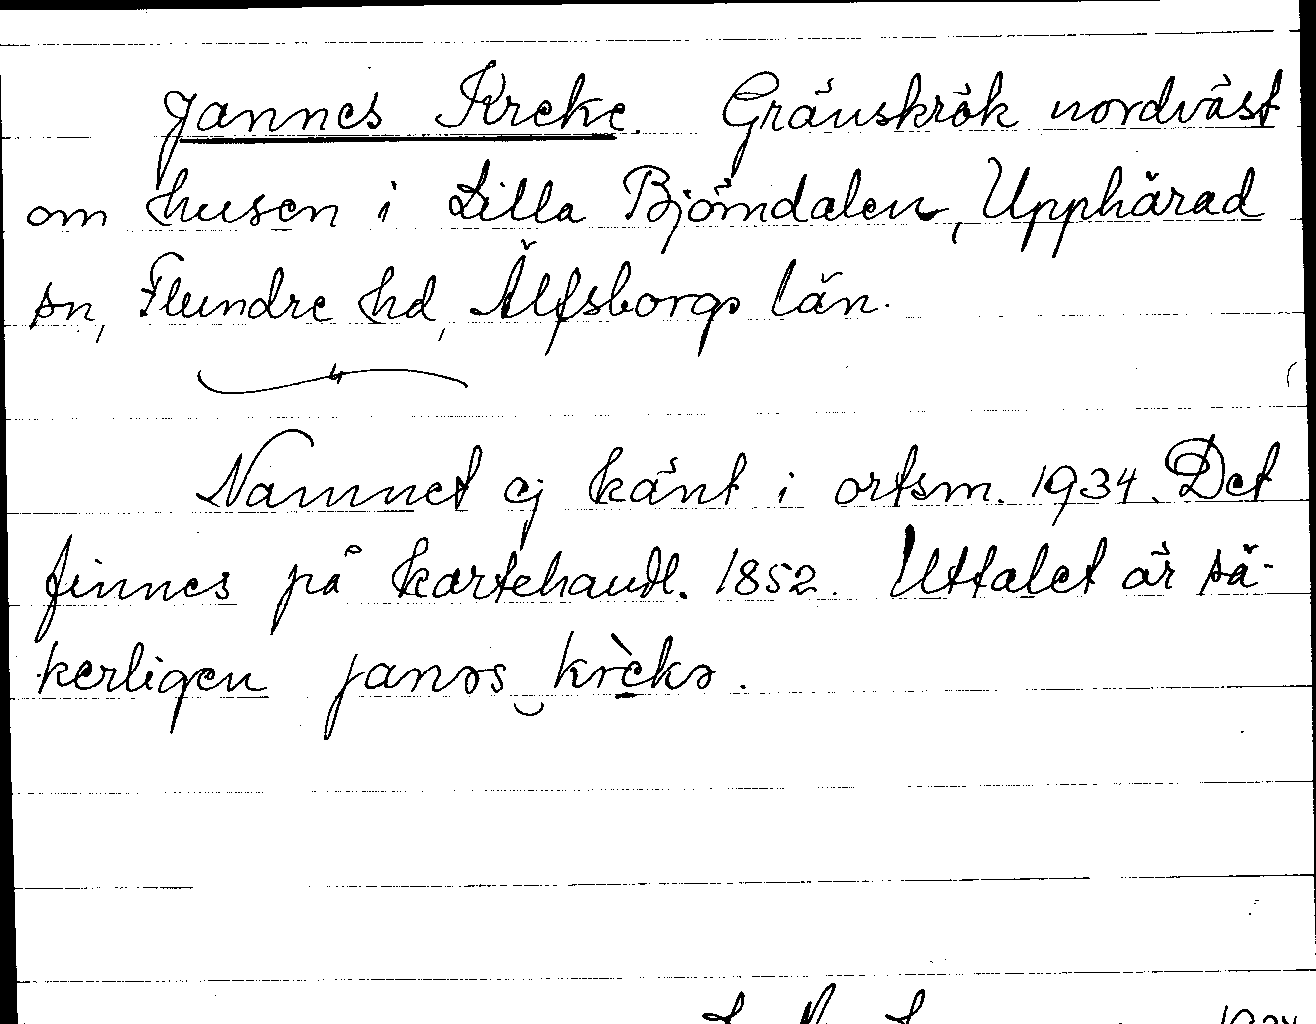 Jannes Kreke. Gränskrök nordväst
om husen i Lilla Björndalen, Upphärad
sn, Flundre hd, Älfsborgs län.
Namnet ej känt i ortsm. 1934. Det
finnes på kartehandl. 1852. Uttalet är sä-
kerligen janəs‿krèkə.